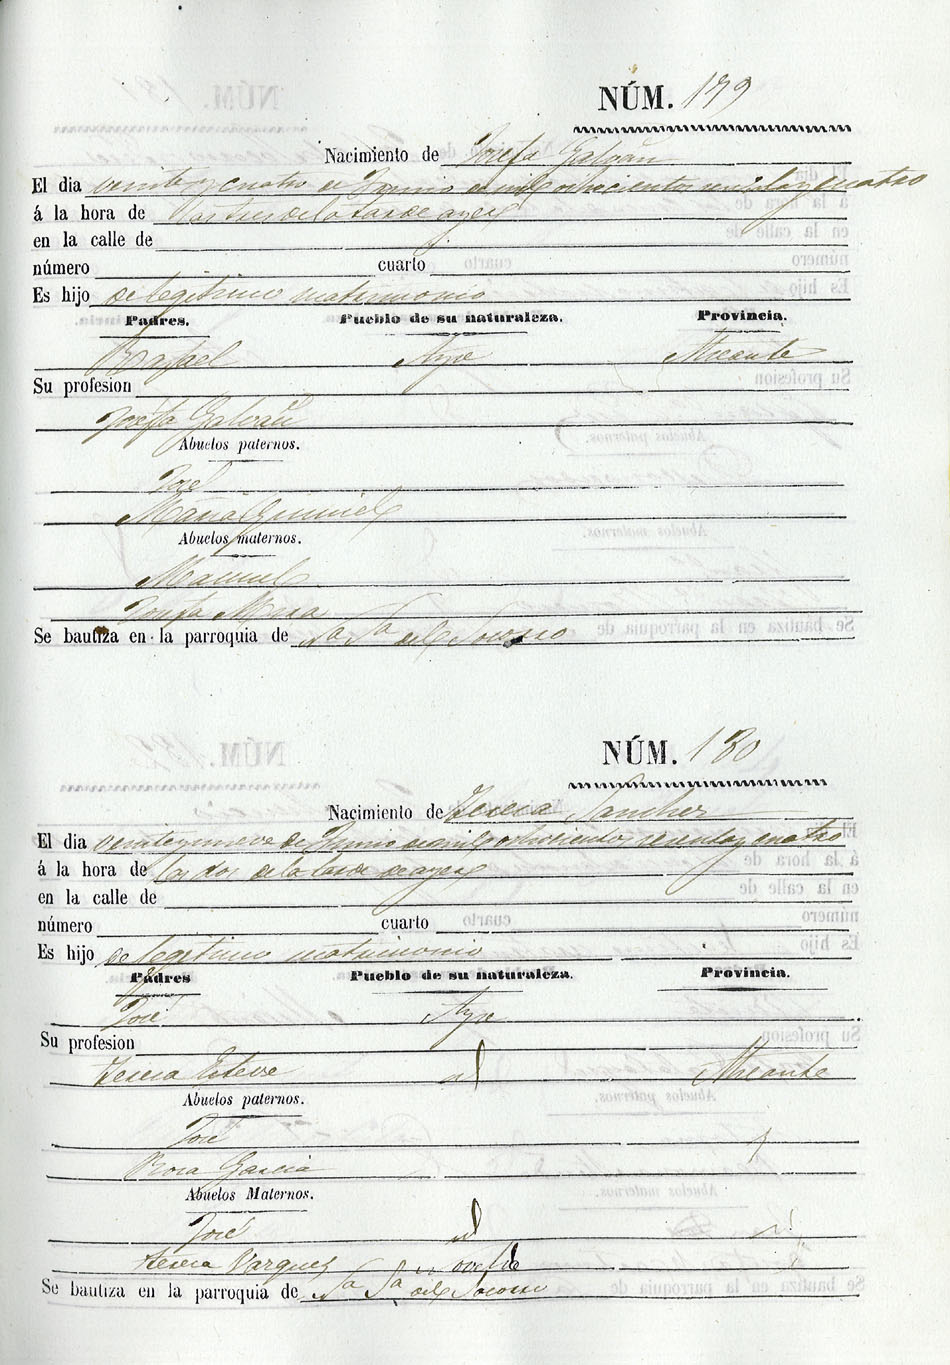 NÚM. 179
Nacimiento de Josefa Galvañ
El dia veinte y cuatro de Junio de mil ochocientos sesenta y cuatro
á la hora de las tres de la tarde de ayer
en la calle de
número cuarto
Es hijo de legitimo matrimonio
Padres. Pueblo de su naturaleza. Provincia.
Rafael Aspe Alicante
Su profesion
Josefa Galvañ
Abuelos paternos.
José
Maria
Abuelos maternos.
Manuel
Josefa Mira
Se bautiza en la parroquia de Na Sa del Socorro
NÚM. 180
Nacimiento de Teresa Sanchez
El dia veinte y nueve de Junio de mil ochocientos sesenta y cuatro
á la hora de las dos de la tarde de ayer
en la calle de
número cuarto
Es hijo de legitimo matrimonio
Padres Pueblo de su naturaleza. Provincia.
José Aspe
Su profesion
Teresa Esteve id Alicante
Abuelos paternos.
José
Rosa Garcia
Abuelos Maternos.
José id
Teresa Vazquez Novelda
Se bautiza en la parroquia de Na Sa del Socorro